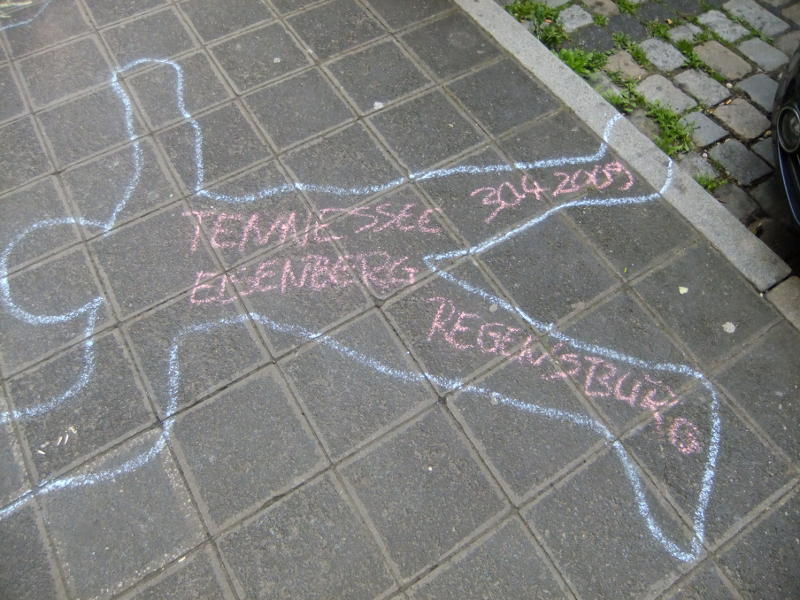 TENNESSEE
EISENBERG
30.4.2009
REGENSBURG